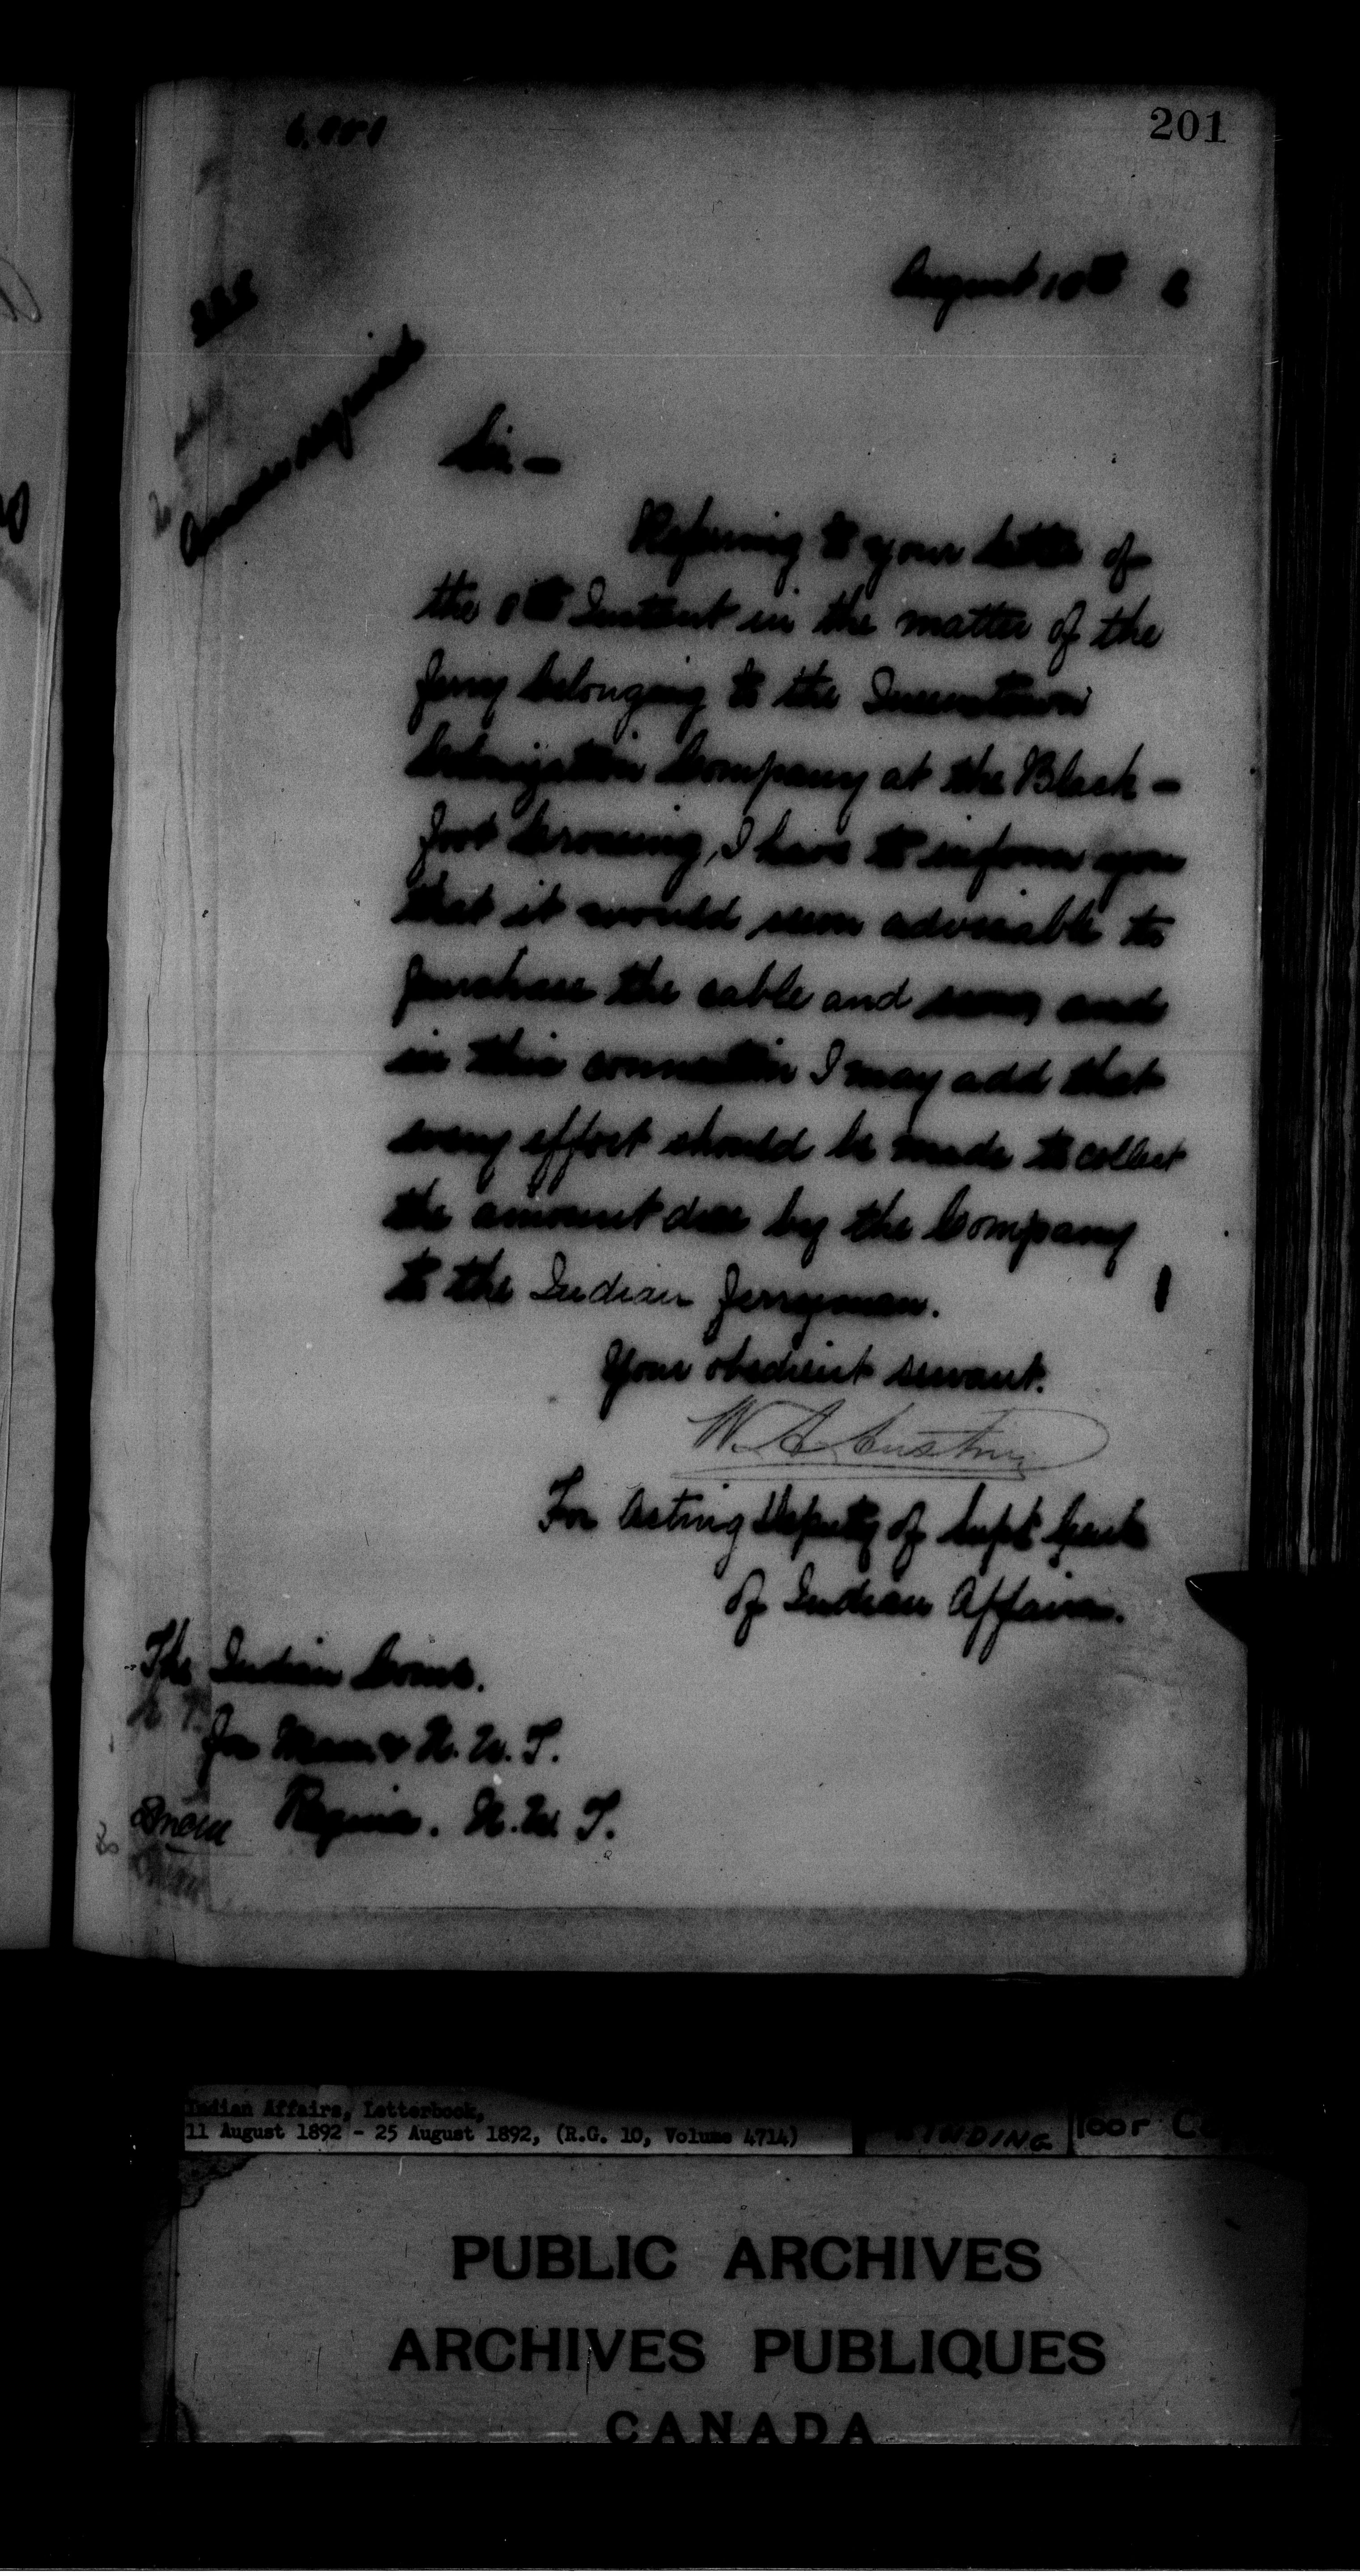 201
August 10th 2
Sir -
Referring to your letter of
the 8th Instant in the matter of the
ferry belonging to the Queenstown
Colonization Company at the Black -
foot Crossing, I have to inform you
that it would seem adviseable to
purchase the cable and scow, and
in this connection I may add that
every effort should be made to collect
the amount due by the Company
to the Indian ferryman.
Your obedient servant.
W. A. Austin
For Acting Deputy of Supt Genl.
of Indian Affairs.
The Indian Comr.
for Man. & N. W. T.
Regina. N. W. T.
Indian Affairs, Letterbook,
11 August 1892 - 25 August 1892, (R.G. 10, Volume 4714)
BINDING
Poor
PUBLIC ARCHIVES
ARCHIVES PUBLIQUES
CANADA